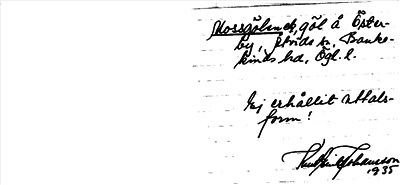 Mossgölen, göl å Öster-
by, Åtvids sn, Banke-
kinds hd, Ögl. l.
Ej erhållit uttals-
form!
Johansson
1935